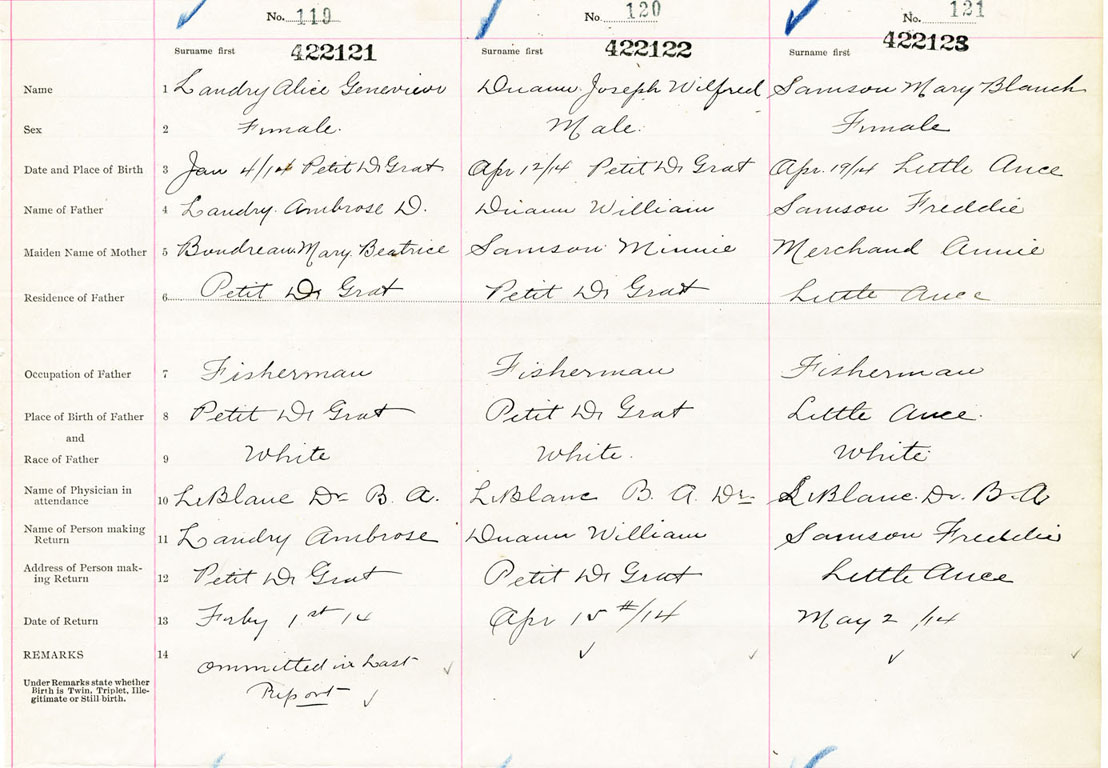 No. 119 No. 120 No. 121
Surname first 422121 Surname first 422122 Surname first 422123
Name 1 Landry Alice Genevieve Duann Joseph Wilfred Samson Mary Blanch
Sex 2 Female. Male. Female
Date and Place of Birth 3 Jan 4/14 Petit De Grat Apr 12/14 Petit De Grat Apr. 19/14 Little Ance
Name of Father 4 Landry. Ambrose D. Duann William Samson Freddie
Maiden Name of Mother 5 Boudreau Mary Beatrice Samson Minnie Merchand Annie
Residence of Father 6 Petit De Grat Petit De Grat Little Ance
Occupation of Father 7 Fisherman Fisherman Fisherman
Place of Birth of Father 8 Petit De Grat Petit De Grat Little Ance.
and
Race of Father 9 White White. White
Name of Physician in
attendance 10 LeBlanc Dr B. A. LeBlanc B. A. Dr LeBlanc. Dr. B. A
Name of Person making
Return 11 Landry Ambrose Duann William Samson Freddie
Address of Person mak-
ing Return 12 Petit De Grat Petit De Grat Little Ance
Date of Return 13 Feby 1st 14 Apr 15th/14 May 2/14
REMARKS 14 ommitted in Last
Report
Under Remarks state whether
Birth is Twin, Triplet, Ille-
gitimate or Still-birth.